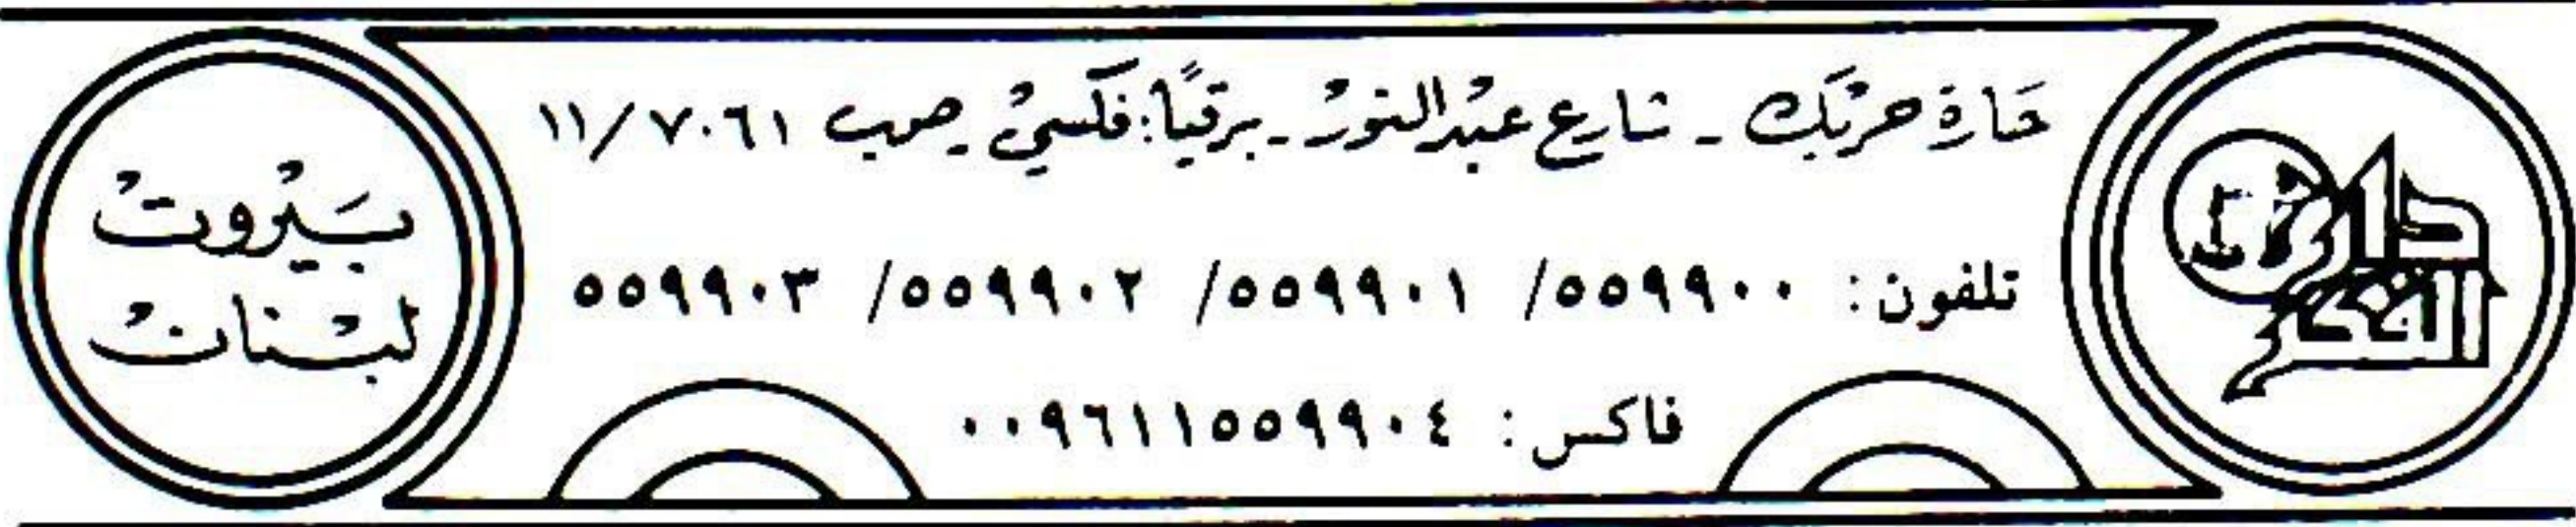 حَارة حرَيك - شارع عبْد النورْ - برقيًا: فكسيْ - صب ١١/٧٠٦١
تلفون: ٥٥٩٩٠٠/ ٥٥٩٩٠١/ ٥٥٩٩٠٢/ ٥٥٩٩٠٣
فاكس: ٠٠٩٦١١٥٥٩٩٠٤
بَيْروتْ
لبْنانْ